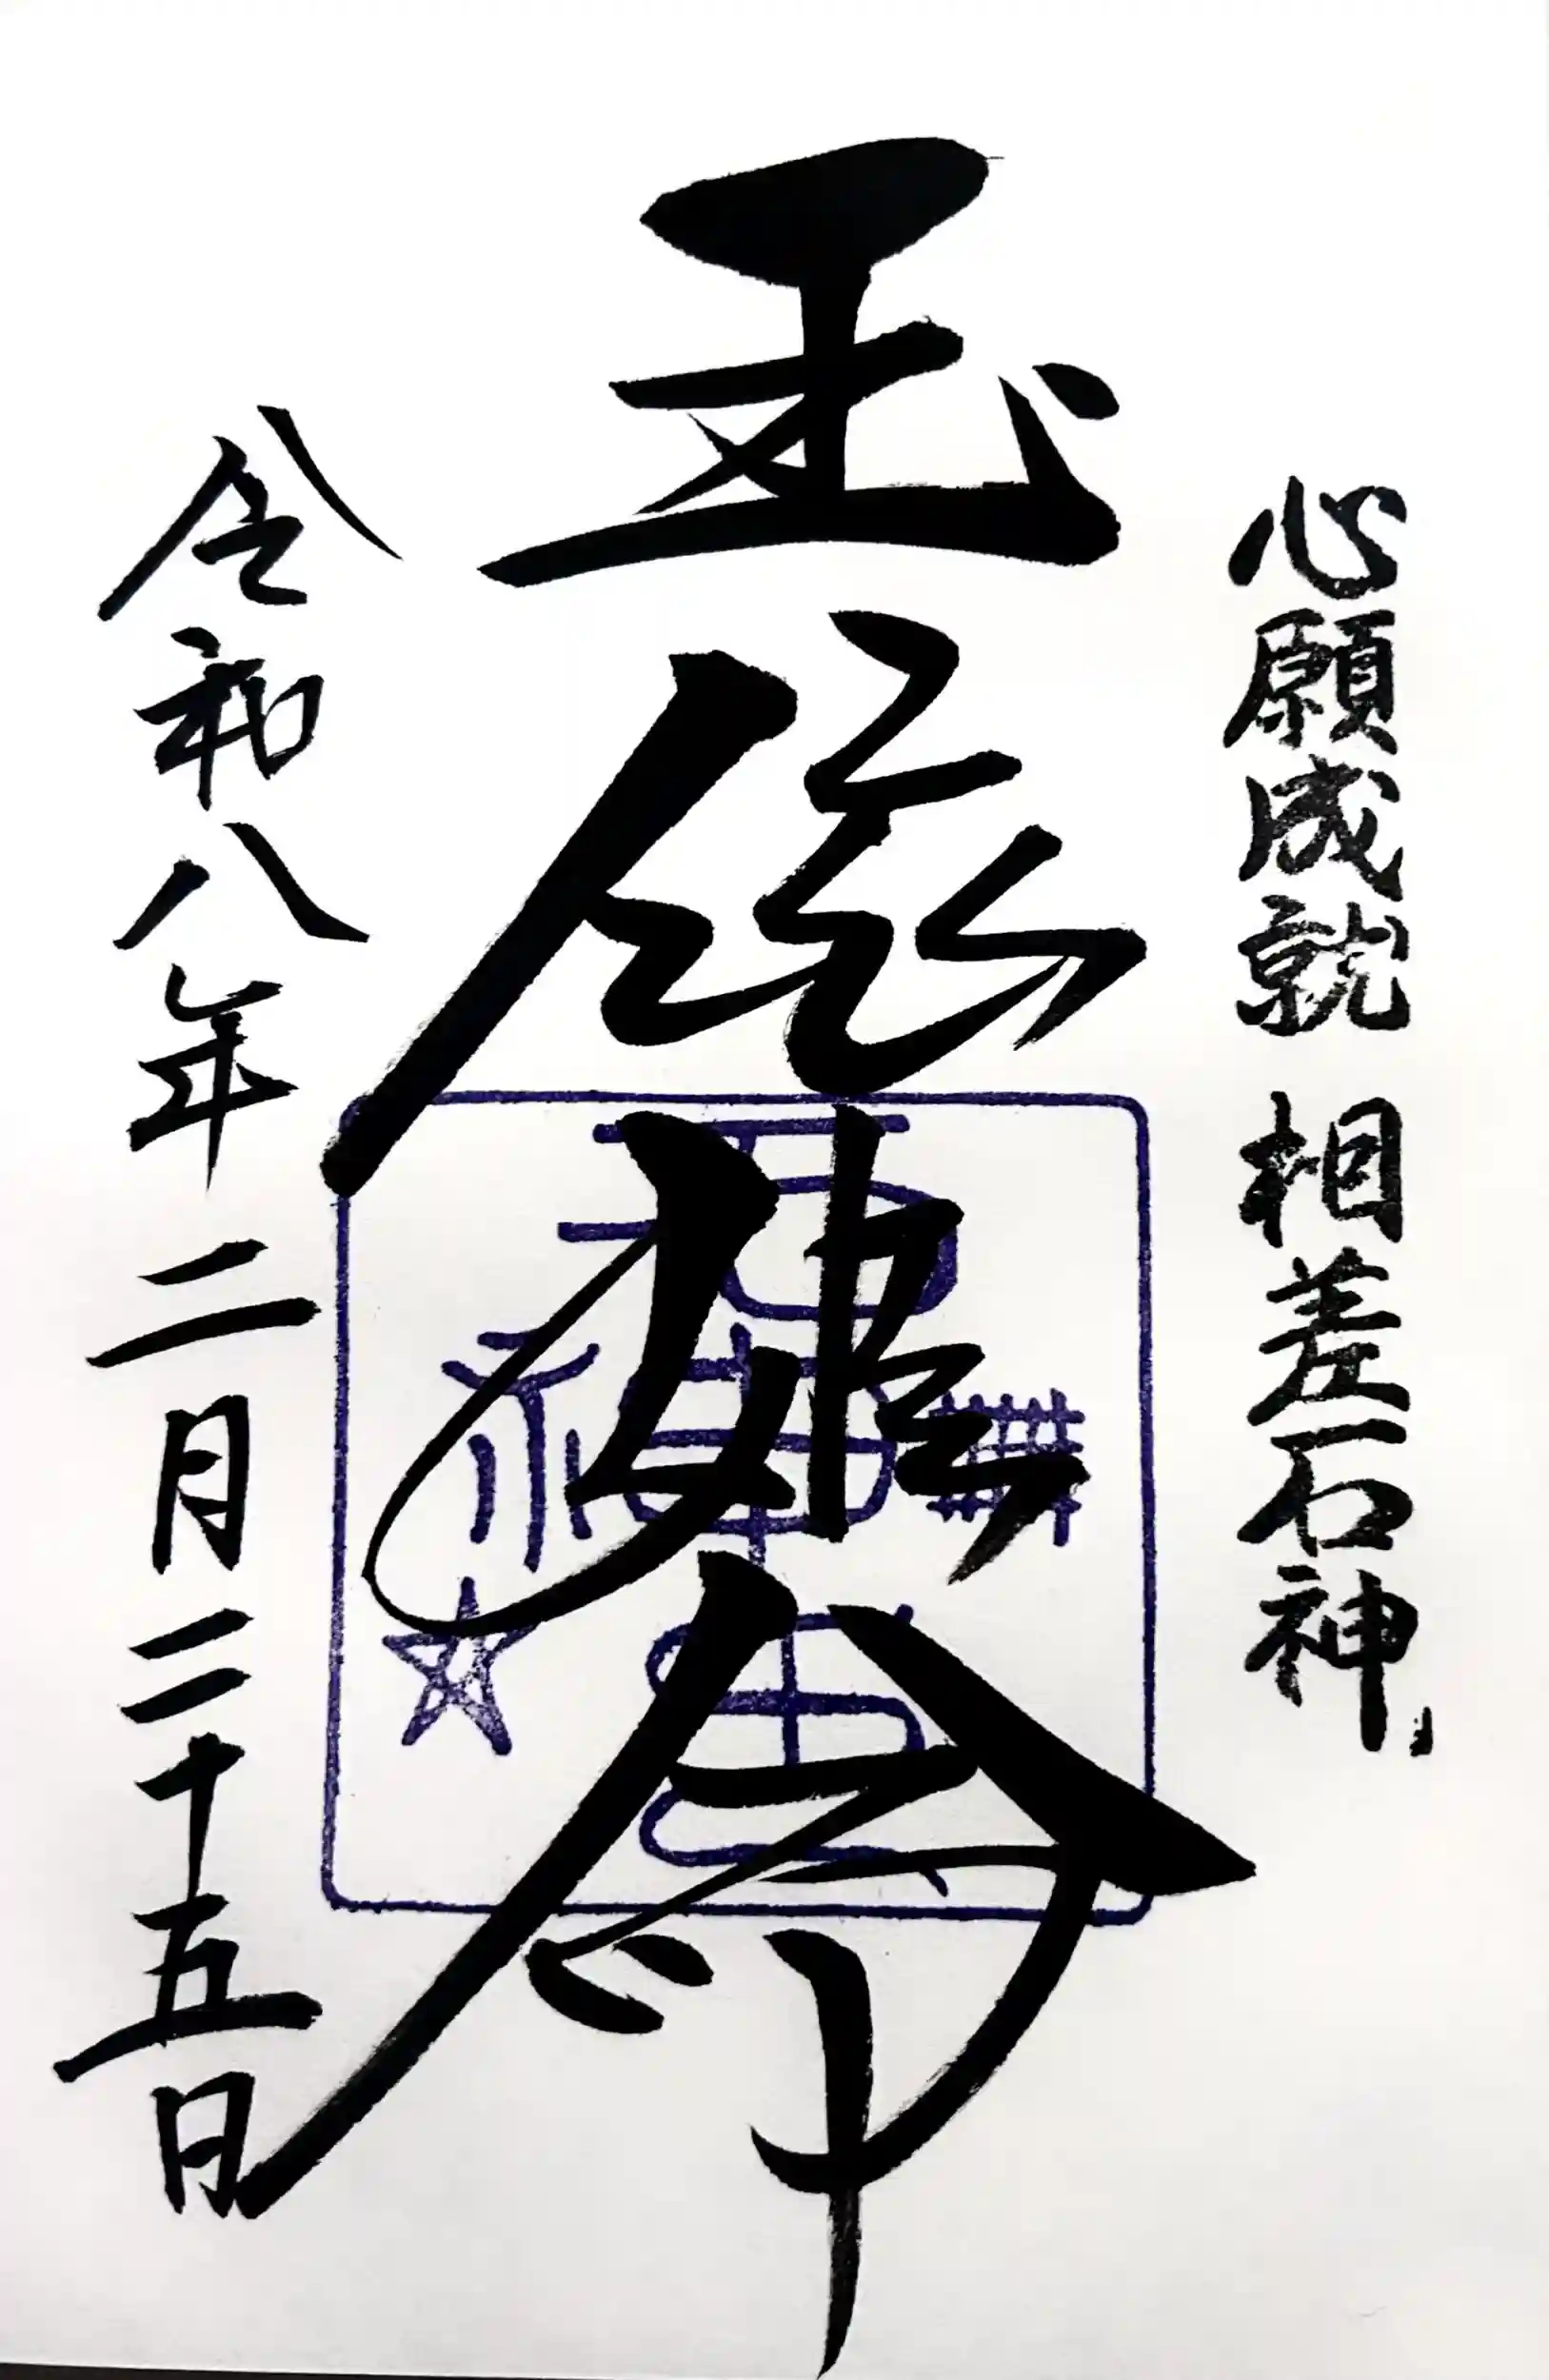 心願成就 相差石神
玉依姫命
令和八年二月二十五日
石神